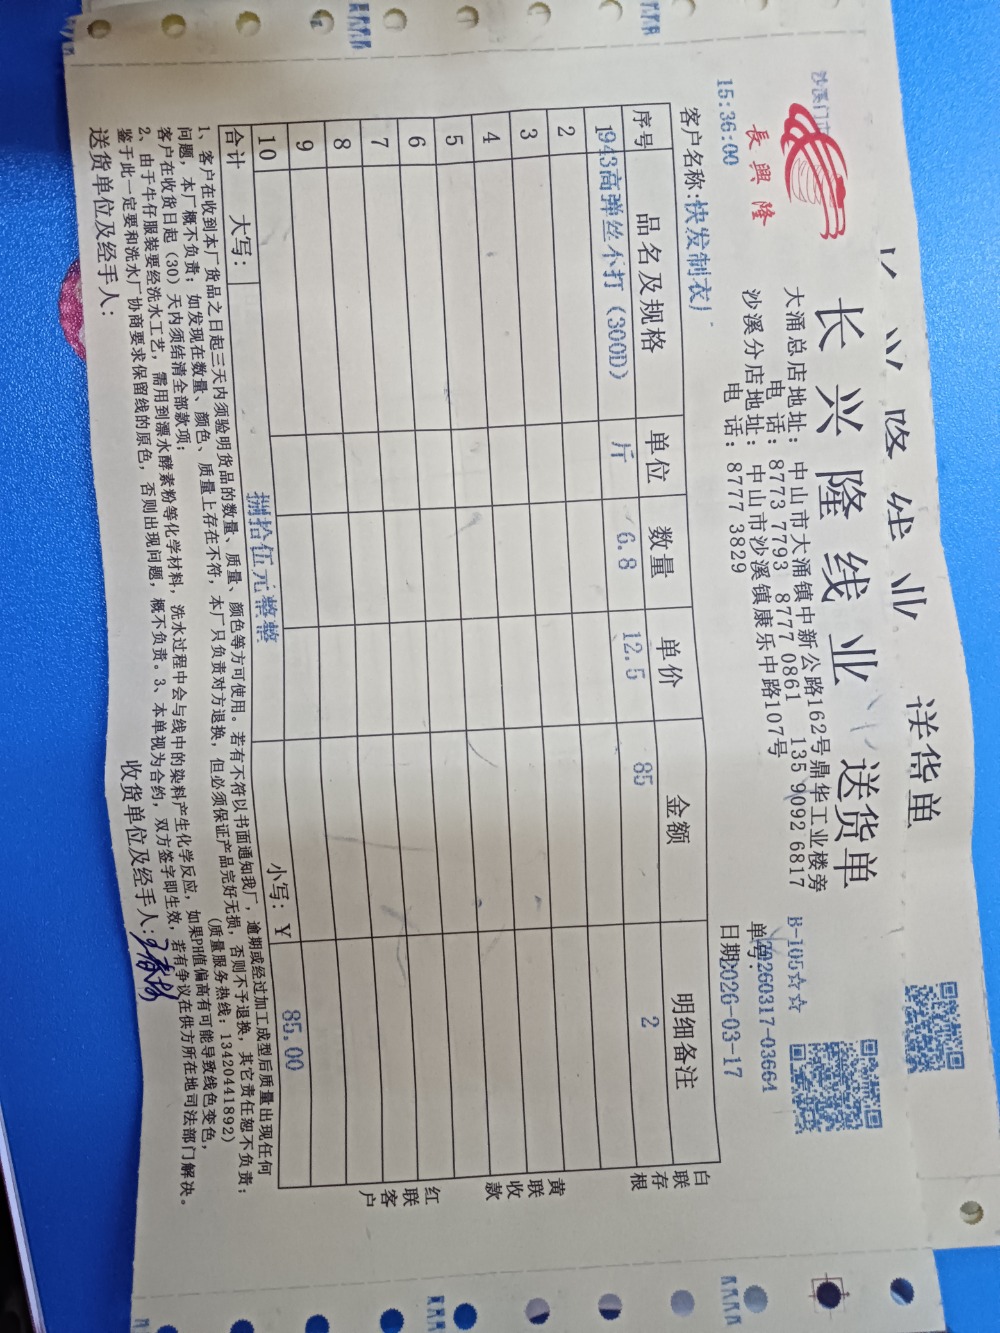 兴隆线业 送货单
長興隆
长兴隆线业 送货单
大涌总店地址：中山市大涌镇中新公路162号鼎华工业楼旁
电话：8773 7793 8777 0861 135 9092 6817
沙溪分店地址：中山市沙溪镇康乐中路107号
电话：8777 3829
沙溪门
15:36:00
B-105☆☆
单号:20260317-03664
客户名称:快发制衣厂
日期2026-03-17
序号 品名及规格 单位 数量 单价 金额 明细备注
1 943高弹丝不打（300D） 斤 6.8 12.5 85 2
2
3
4
5
6
7
8
9
10
合计 大写： 捌拾伍元整整 小写：￥ 85.00
1、客户在收到本厂货品之日起三天内须验明货品的数量、质量、颜色等方可使用。若有不符以书面通知我厂，逾期或经过加工成型后质量出现任何
问题，本厂概不负责；如发现在数量、颜色、质量上存在不符，本厂只负责对方退换，但必须保证产品完好无损，否则不予退换，其它责任恕不负责；
客户在收货日起（30）天内须结清全部款项； （质量服务热线：13420441892）
2、由于牛仔服装要经洗水工艺，需用到漂水酵素粉等化学材料，洗水过程中会与线中的染料产生化学反应，如果PH值偏高有可能导致线色变色，
鉴于此一定要和洗水厂协商要求保留线的原色，否则出现问题，概不负责。3、本单视为合约，双方签字即生效，若有争议在供方所在地司法部门解决。
送货单位及经手人： 收货单位及经手人：
白联存根
黄联收款
红联客户